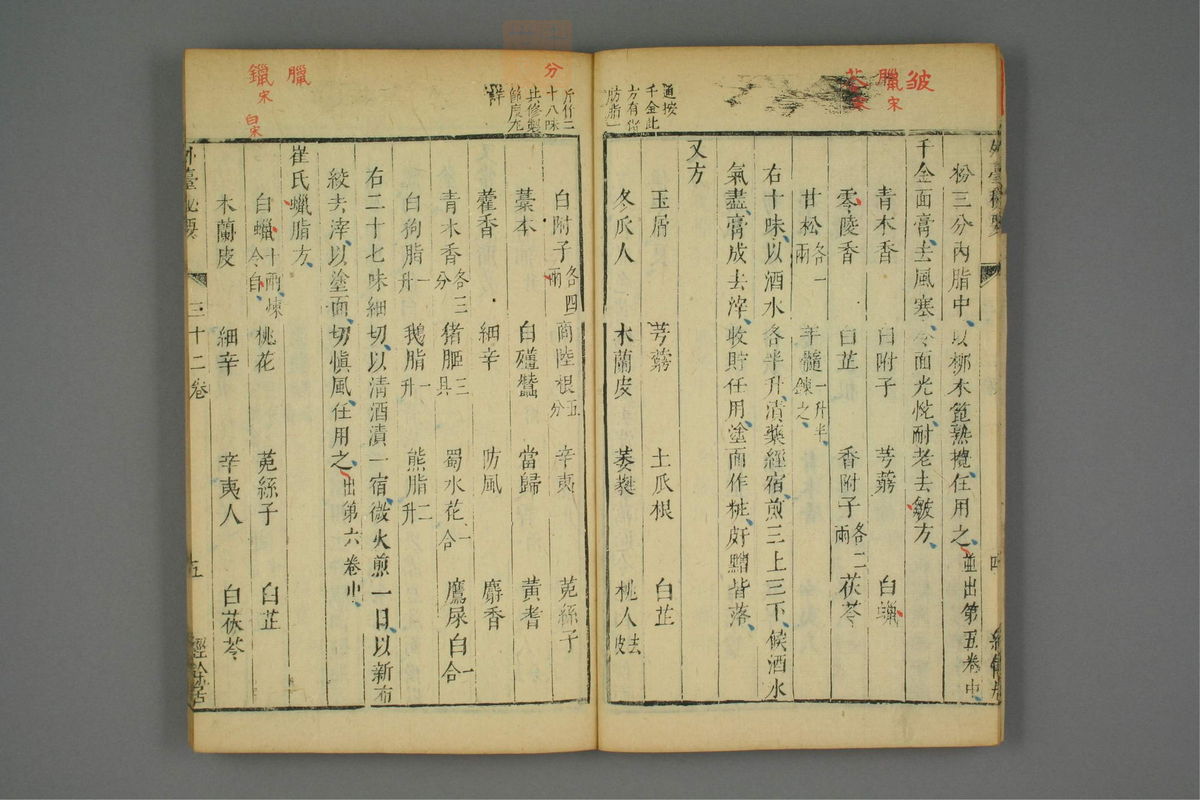 皴
臘
宋
分
通按
千金此
方有
防脂一
粉三分內脂中以柳木篦熟攪任用之並出第五卷中
千金面膏去風塞令面光悅耐老去皺方
青木香 白附子 芎藭 白蠟
零陵香 白芷 香附子各二兩 茯苓
甘松各一兩 羊髓一升半鍊之
右十味以酒水各半升漬藥經宿煎三上三下候酒水
氣盡膏成去滓收貯任用塗面作粧皯䵟皆落
又方
玉屑 芎藭 土瓜根 白芷
冬瓜人 木蘭皮 萎蕤 桃人去皮
臘
鑞
宋
白宋
斤竹二
十八味
此修製
節度尤
詳
白附子各四兩 商陸根五分 辛夷 菟絲子
藁本 白殭蠶 當歸 黃耆
藿香 細辛 防風 麝香
青木香各三分 猪胆三具 蜀水花一合 鷹屎白一合
白狗脂一升 鵝脂一升 熊脂二升
右二十七味細切以清酒漬一宿微火煎一日以新布
絞去滓以塗面切慎風任用之出第六卷中
崔氏蠟脂方
白蠟十兩煉令白 桃花 菟絲子 白芷
木蘭皮 細辛 辛夷人 白茯苓
外臺秘要 三十二卷 五 經餘居